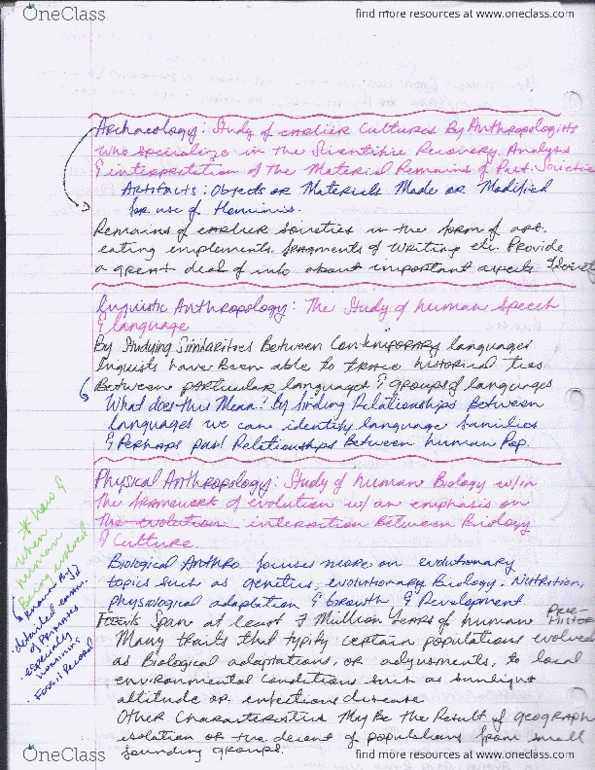 OneClass
find more resources at www.oneclass.com
Archaeology: Study of earlier Cultures By Anthropologists
who specialize in the Scientific Recovery, Analysis
& interpretation of the Material Remains of Past Societies
Artifacts: Objects or Materials Made or Modified
for use of Hominins.
Remains of earlier societies in the form of art,
eating implements, fragments of writing etc. Provide
a great deal of info about important aspects Society
Linguistic Anthropology: The Study of human Speech
& language
By Studying Similarities Between Contemporary languages
linguists have Been able to trace historical ties
Between particular languages & groups of languages
What does this Mean? By finding Relationships Between
languages we can identify language families
& Perhaps past Relationships Between human Pop.
Physical Anthropology: Study of human Biology w/in
the framework of evolution w/ an emphasis on
the evolution interaction Between Biology
& Culture.
* how &
when
human
Being evolved
Biological Anthro. focuses more on evolutionary
topics such as genetics, evolutionary Biology, Nutrition,
physiological adaptation & Growth & Development
detailed exam.
of primates
especially
hominins
Fossil Record
Fossils Span at least 7 Million Years of human Pre-
Histor
Many traits that typify certain populations evolved
as Biological adaptations, or adjustments, to local
environmental Conditions such as sunlight
altitude or infectious disease
Other Characteristics May Be the Result of geograph
isolation or the decent of populations from small
founding groups.
OneClass
find more resources at www.oneclass.com